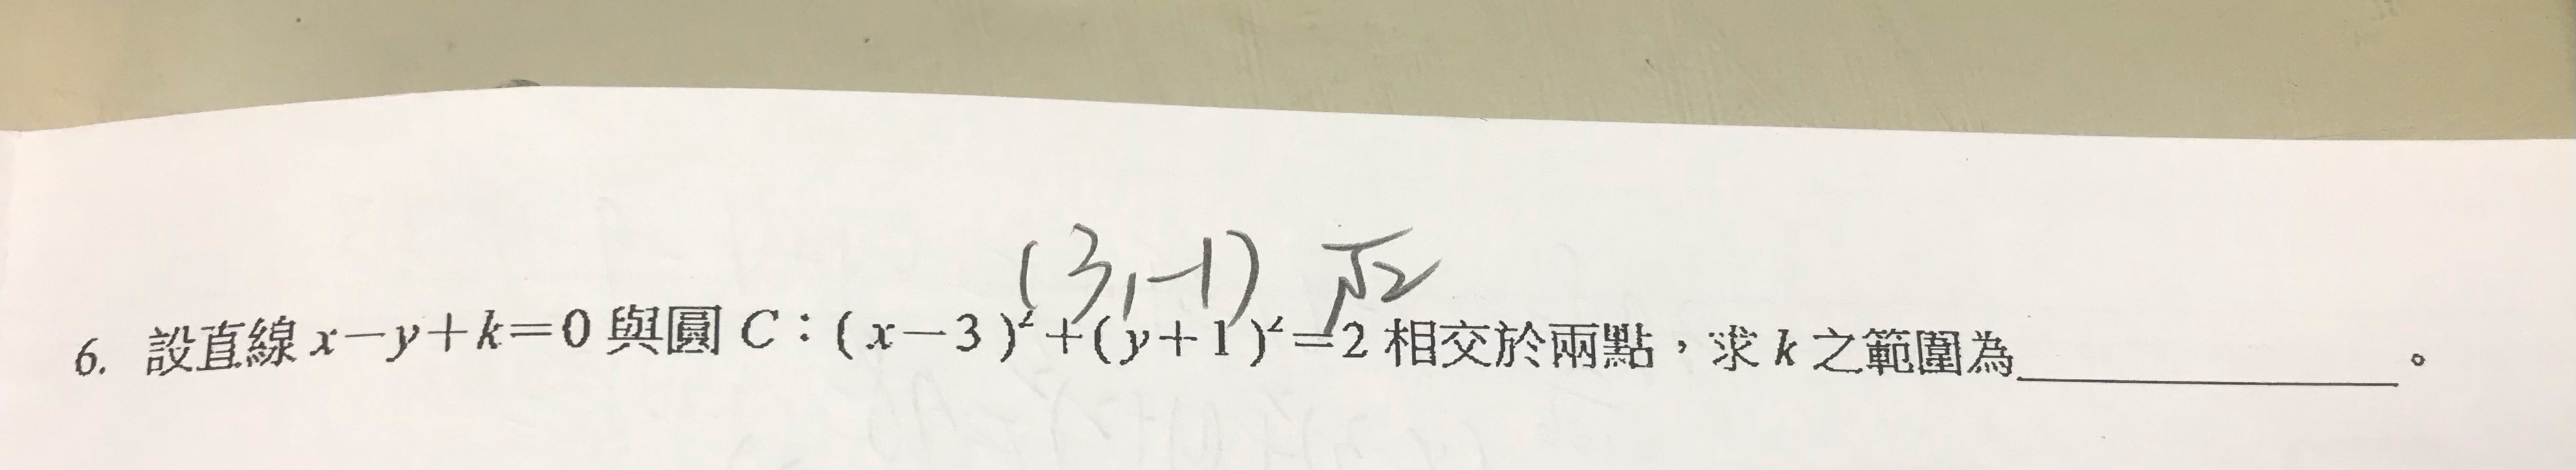 (3,-1) √2
6. 設直線 x－y＋k＝0 與圓 C：(x－3)²＋(y＋1)²＝2 相交於兩點，求 k 之範圍為__________。